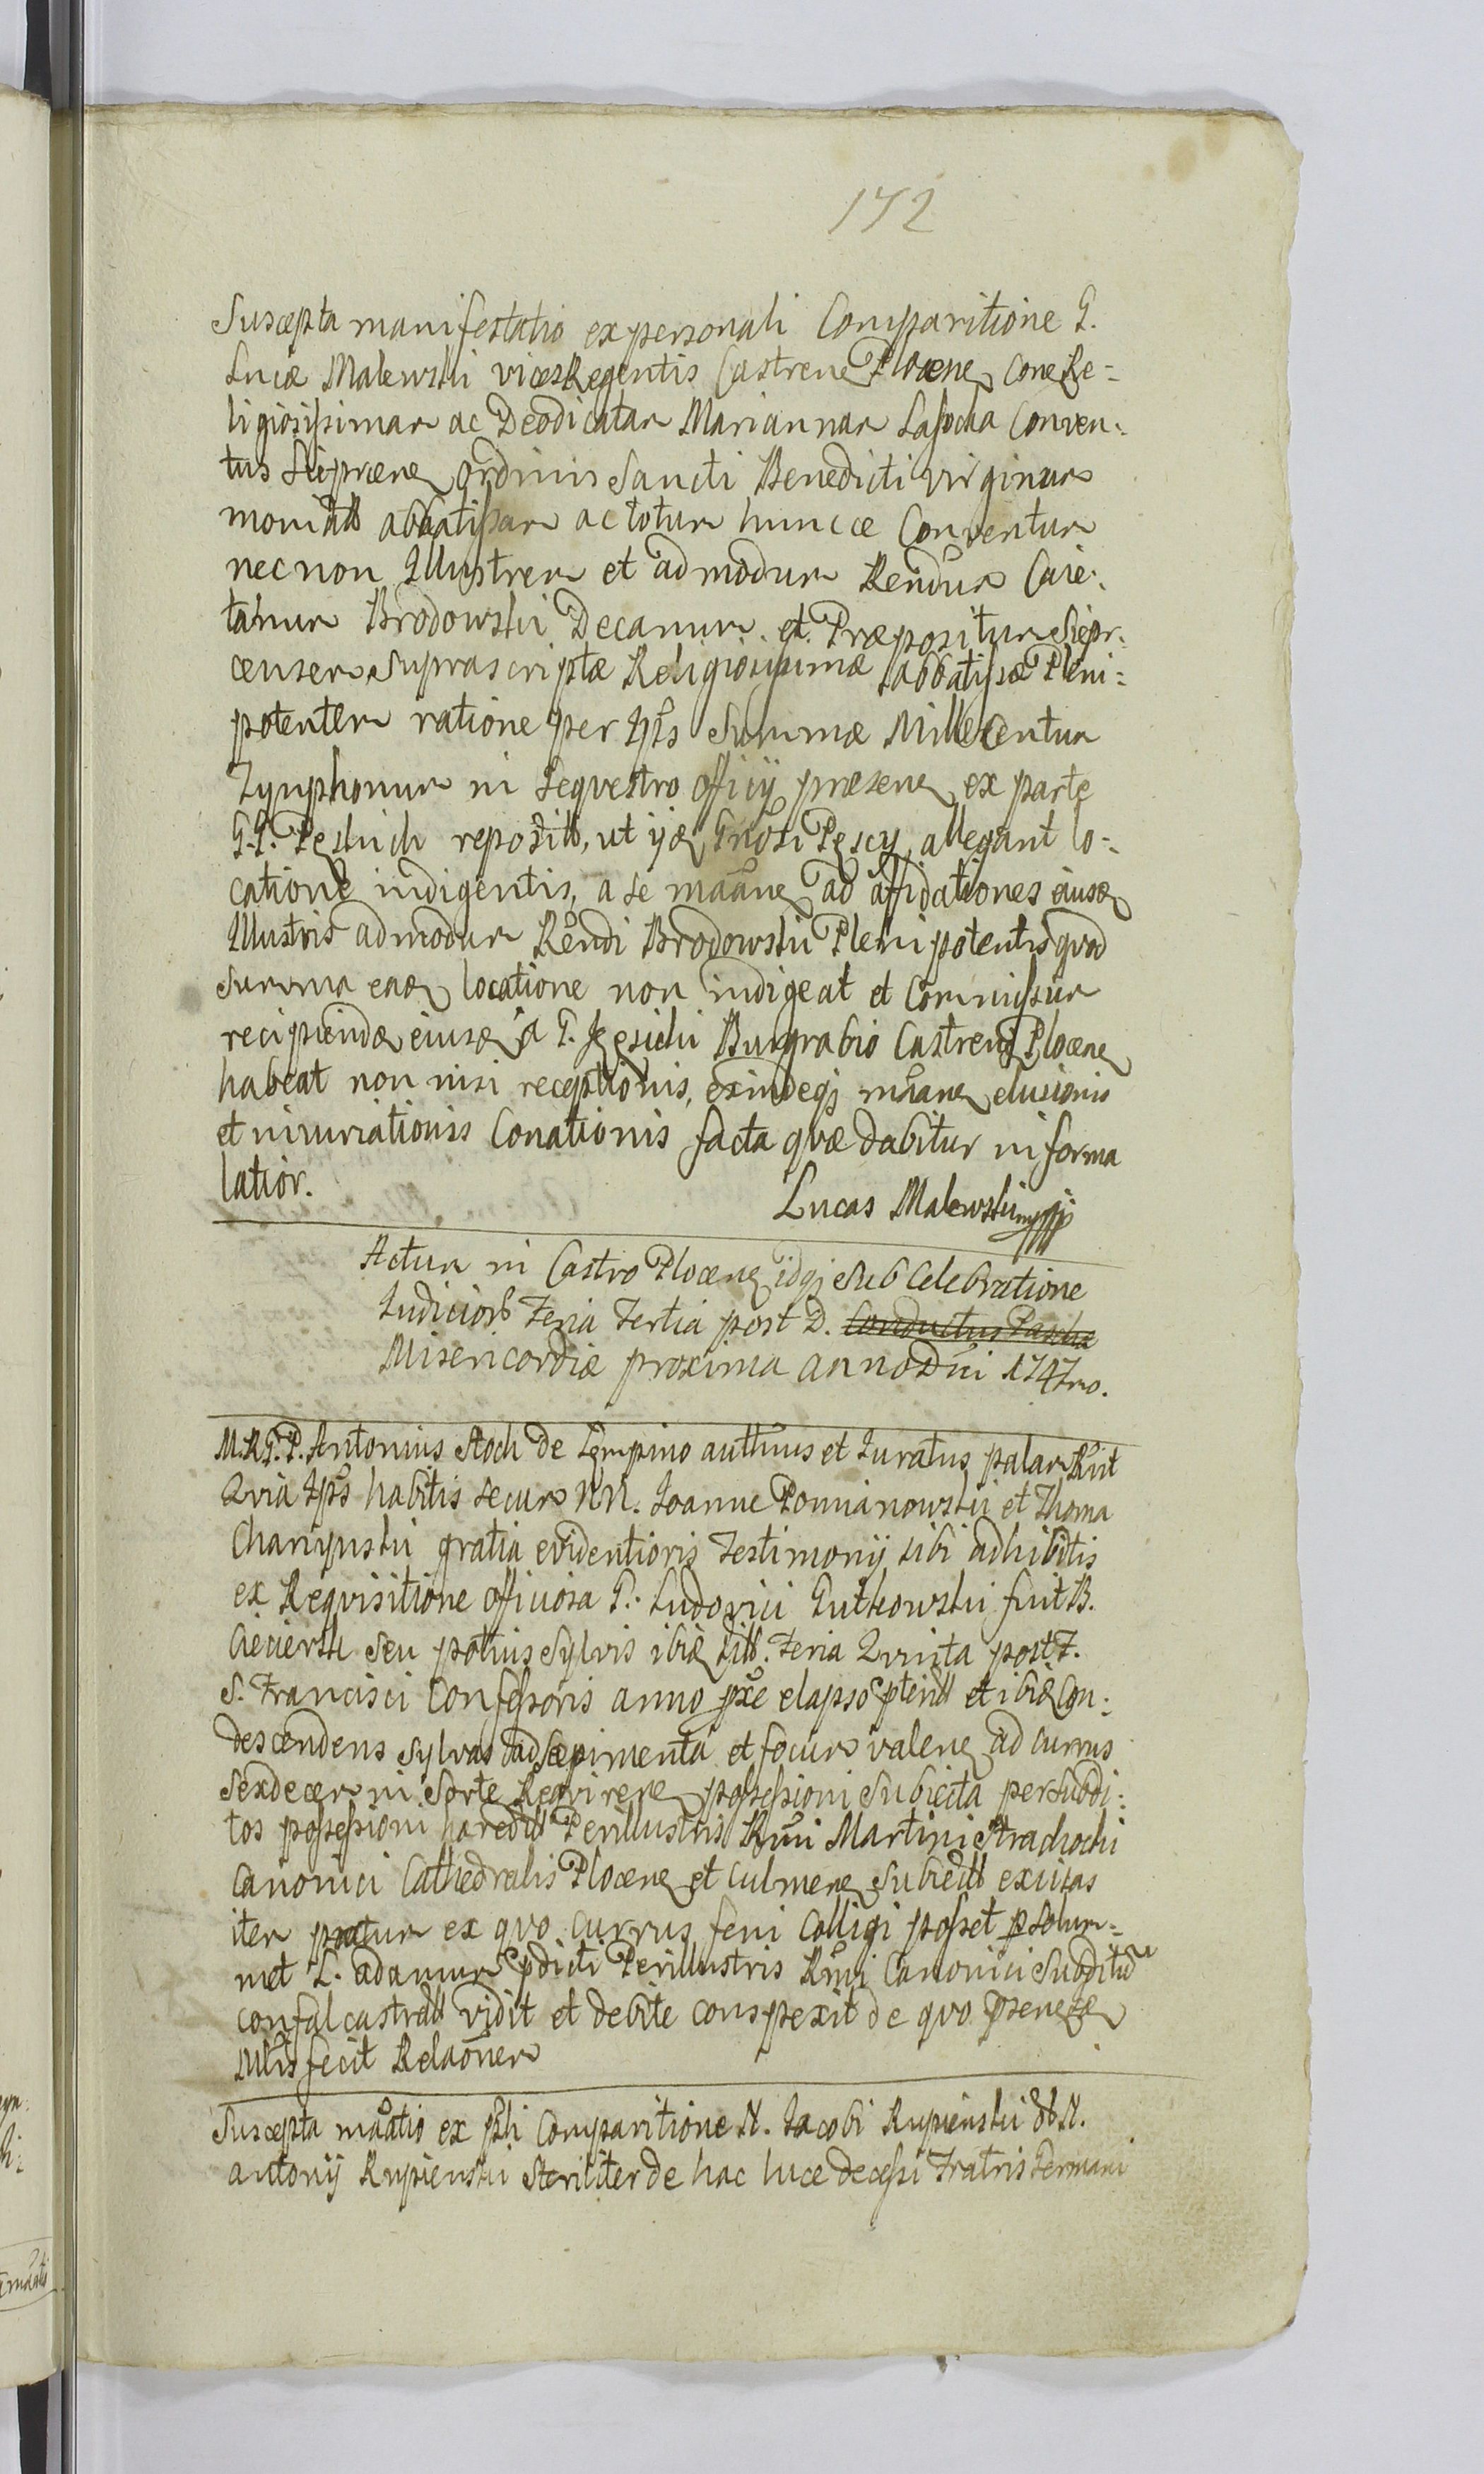 172
Suscepta manifestatio ex personali Comparitione G.
Lucæ Malewski vices Regentis Castren Plocen Con Re=
ligiosissimam ac Deodicatam Mariannam Lasocka Conven:
tus Sieprcen Ordinis Sancti Benedicti Virginum
monialium abbatissam ac totum huncce Conventum
nec non Illustrem et admodum Rendum Caie:
tanum Brodowski Decanum et Præpositum Siepr:
censem suprascriptæ Religiosissimæ abbatissæ Pleni=
potentem ratione per Ipsos Summæ Mille Centum
Tynphonum in Sequestro officij præsen ex parte
G.G. Peskich repositarum, ut ijd Gnosi Pescy allegant lo=
catione indigentis, a se maane ad affidationes eiusd
Illustris admodum Rendi Brodowski Plenipotentis quod
Summa ead locatione non indigeat et Commissum
recipiendæ eiusd a G. Burgrabio Castren Plocen
habeat non nisi receptionis, exindeq maane elusionis
et iniuriationis Conationis facta quæ dabitur in forma
latior.
Lucas Malewski mpp
Actum in Castro Plocen idq sub Celebratione
Iudiciorum Feria Tertia post D. Conductus Paschæ
Misericordiæ proxima anno Dni 1747mo.
M.R.G.P. Antonius Stoch de Lempino authnus et Iuratus palam Rnt
Quia Ipse habitis secum NN. Joanne Pomianowski et Thoma
Charzynski gratia evidentioris Testimonij sibi adhibitis
ex Requisitione officiosa G. Ludovici Gutkowski fuit B.
Ciciersk seu potius Sylvis ibid sitis Feria Quinta post F.
S. Francisci Confessoris anno pxe elapso pterito et ibid Con:
descendens sylvas ad sæpimenta et focum valen ad currus
sexdecem in Sorte Requiren possessioni Subiecta per subdi:
tos possessioni hæredit Perillustris Rmi Martini Strachocki
Canonici Cathedralis Plocen et Culmen Subiect excisas
item pratum ex quo currus feni Colligi posset p solum=
met L. adamum pdicti Perillustris Rmi Canonici Subditum
confalcastratum vidit et debite conspexit de quo præns
suam fecit Relaonem
Suscepta maatio ex psli Comparitione N. Jacobi Rupienski ob N.
antonij Rupienski Steriliter de hac luce decessi Fratris Germani